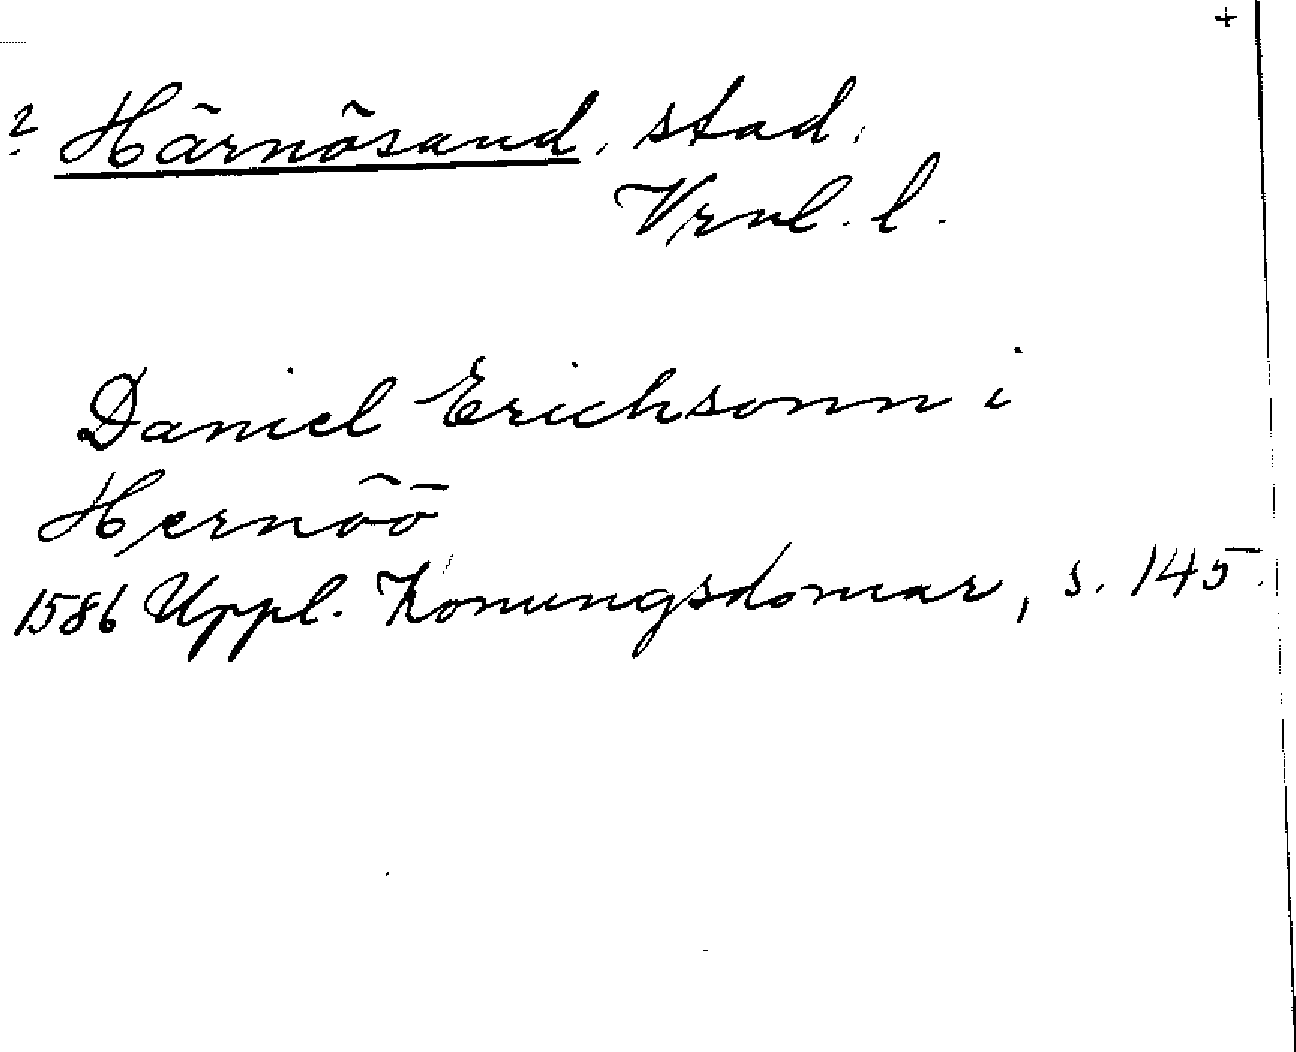 +
? Härnösand, stad,
Vrnl. l.
Daniel Erichsonn i
Hernöö
1586 Uppl. Konungsdomar, s. 145.